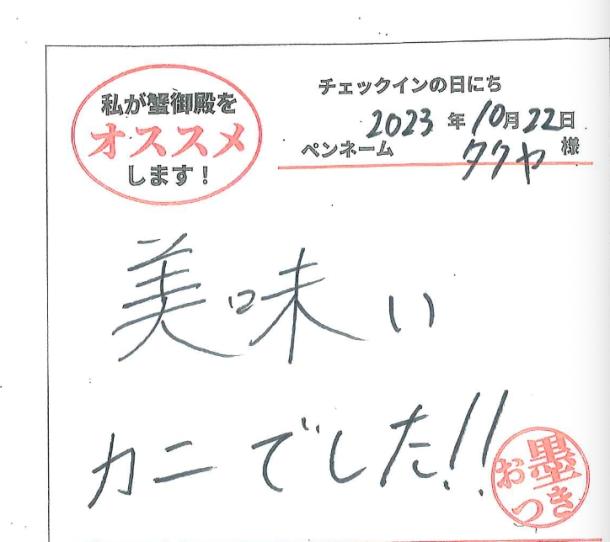 私が蟹御殿を
オススメ
します！
チェックインの日にち
2023年10月22日
ペンネーム タクヤ 様
美味い
カニでした!!
お墨つき